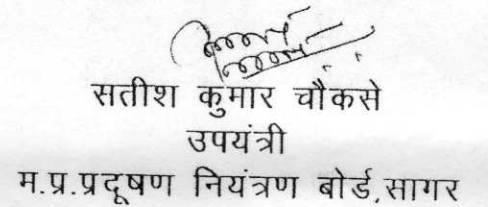 सतीश कुमार चौकसे
उपयंत्री
म.प्र.प्रदूषण नियंत्रण बोर्ड,सागर